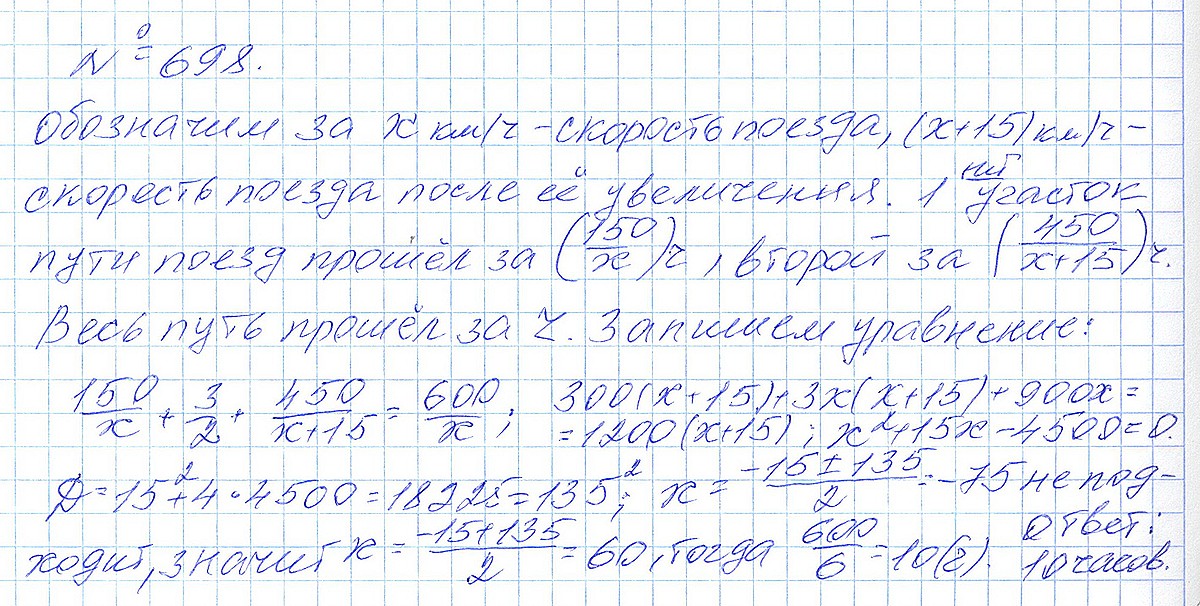 № 698.
Обозначим за x км/ч - скорость поезда, (x+15) км/ч -
скорость поезда после её увеличения. 1 ый участок
пути поезд прошёл за (150/x) ч, второй за (450/x+15) ч.
Весь путь прошёл за ч. Запишем уравнение:
150/x + 3/2 + 450/x+15 = 600/x ; 300(x+15)+3x(x+15)+900x=
=1200(x+15) ; x²+15x-4500=0.
D=15²+4·4500=18225=135²; x = -15±135/2 = -75 не под-
ходит, значит x = -15+135/2 = 60, тогда 600/6 = 10(ч). Ответ:
10 часов.